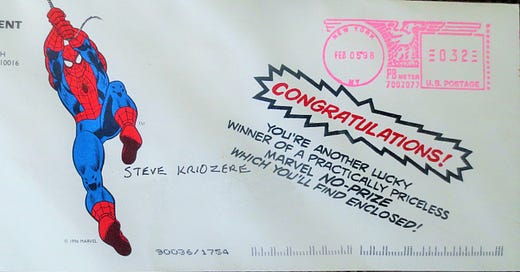 ENT
H
10016
NEW YORK
FEB 05'98
NY
PB METER
7002077
0.32
U.S. POSTAGE
CONGRATULATIONS!
YOU'RE ANOTHER LUCKY
WINNER OF A PRACTICALLY PRICELESS
MARVEL NO-PRIZE
WHICH YOU'LL FIND ENCLOSED!
TM
STEVE KRIOZERE
© 1996 MARVEL
90036/1754